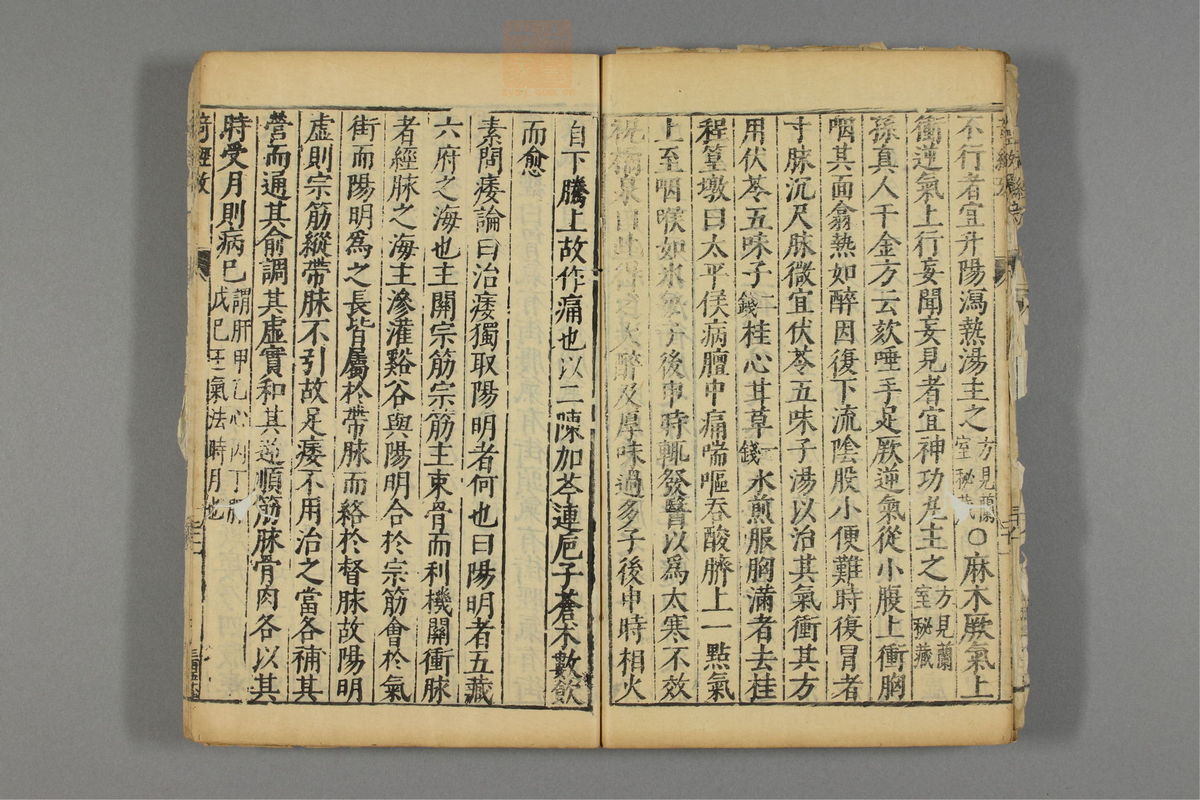 不行者宜升陽瀉熱湯主之方見蘭室秘藏○麻木厥氣上
衝逆氣上行妄聞妄見者宜神功丸主之方見蘭室秘藏
孫真人千金方云欬唾手足厥逆氣從小腹上衝胸
咽其面翕熱如醉因復下流陰股小便難時復冒者
寸脉沉尺脉微宜伏苓五味子湯以治其氣衝其方
用伏苓五味子二錢桂心甘草一錢水煎服胸滿者去桂
程篁墩曰太平侯病膻中痛喘嘔吞酸臍上一點氣
上至咽喉如氷每子後申時輒發醫以爲太寒不效
祝橘泉曰此得之火醉及厚味過多子後申時相火
自下騰上故作痛也以二陳加芩連巵子蒼术數飲
而愈
素問痿論曰治痿獨取陽明者何也曰陽明者五藏
六府之海也主閏宗筋宗筋主束骨而利機關衝脉
者經脉之海主滲灌谿谷與陽明合於宗筋會於氣
街而陽明爲之長皆屬於帶脉而絡於督脉故陽明
虛則宗筋縱帶脉不引故足痿不用治之當各補其
營而通其俞調其虛實和其逆順筋脉骨肉各以其
時受月則病已謂肝甲乙心丙丁脾戊巳王氣法時月也
奇經攷